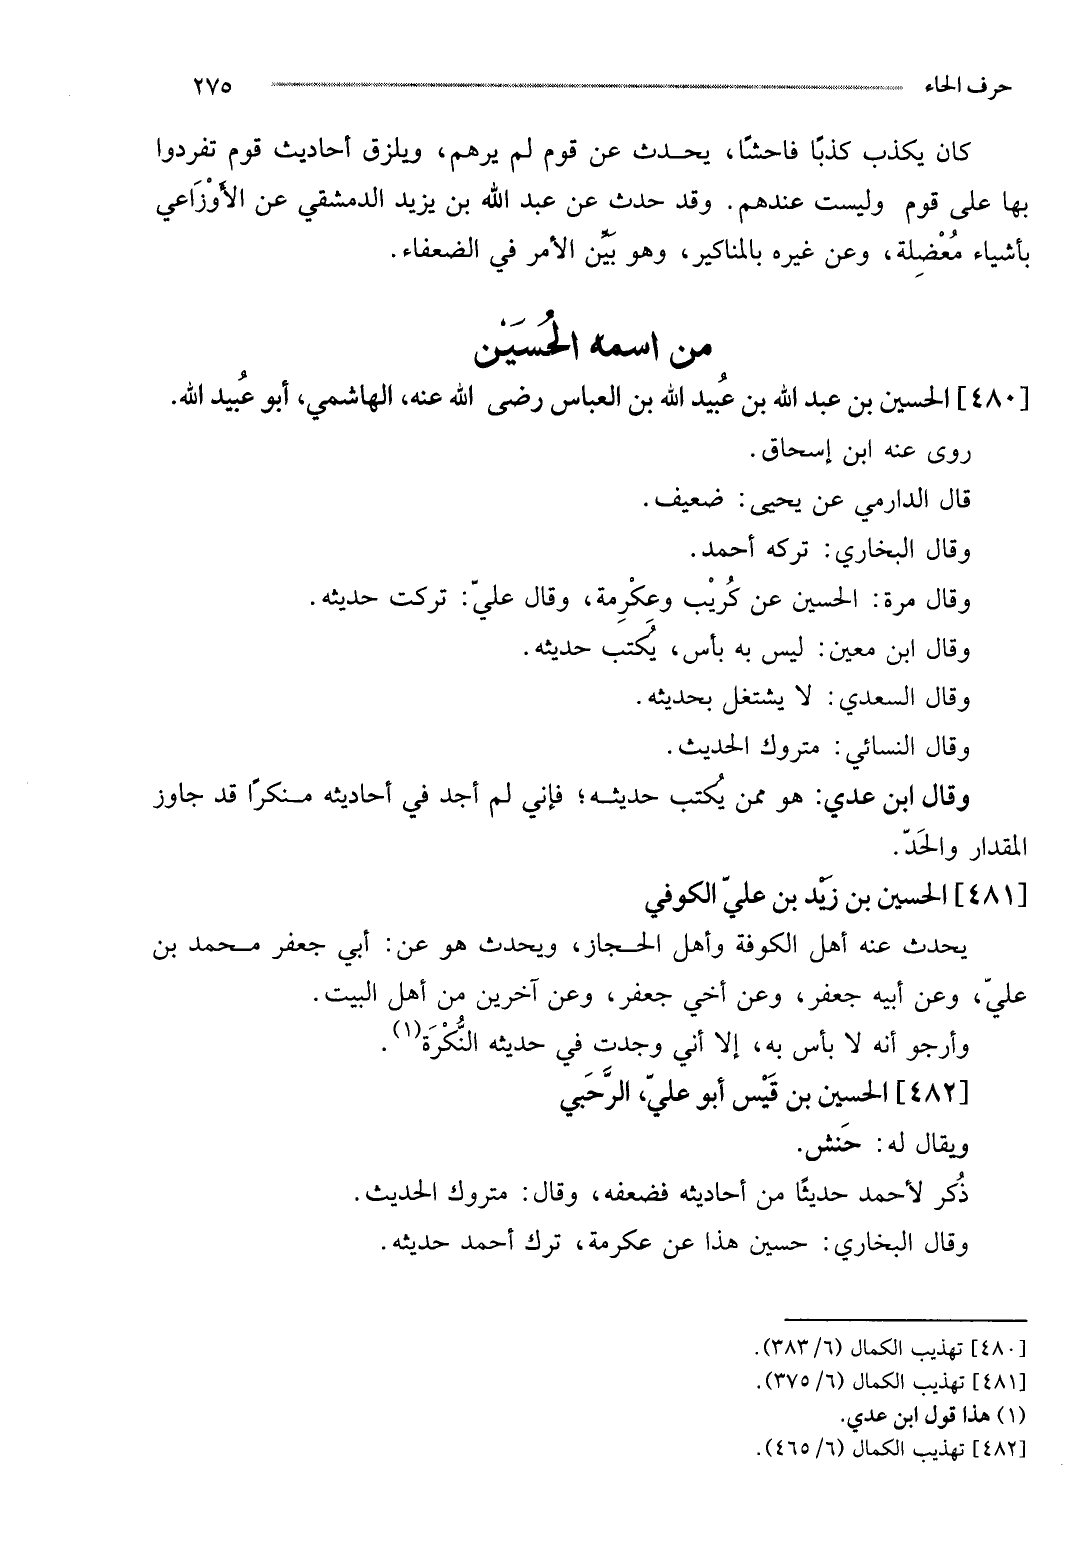 حرف الحاء ٢٧٥
كان يكذب كذبًا فاحشًا، يحدث عن قوم لم يرهم، ويلزق أحاديث قوم تفردوا
بها على قوم وليست عندهم. وقد حدث عن عبد الله بن يزيد الدمشقي عن الأَوْزَاعي
بأشياء مُعْضِلة، وعن غيره بالمناكير، وهو بَيِّن الأمر في الضعفاء.
من اسمه الحُسَيْن
[٤٨٠] الحسين بن عبد الله بن عُبيد الله بن العباس رضى الله عنه، الهاشمي، أبو عُبيد الله.
روى عنه ابن إسحاق.
قال الدارمي عن يحيى: ضعيف.
وقال البخاري: تركه أحمد.
وقال مرة: الحسين عن كُرَيْب وعِكْرِمة، وقال عليّ: تركت حديثه.
وقال ابن معين: ليس به بأس، يُكتب حديثه.
وقال السعدي: لا يشتغل بحديثه.
وقال النسائي: متروك الحديث.
وقال ابن عدي: هو ممن يُكتب حديثه؛ فإني لم أجد في أحاديثه منكرًا قد جاوز
المقدار والحَدّ.
[٤٨١] الحسين بن زَيْد بن عليّ الكوفي
يحدث عنه أهل الكوفة وأهل الحجاز، ويحدث هو عن: أبي جعفر محمد بن
عليّ، وعن أبيه جعفر، وعن أخي جعفر، وعن آخرين من أهل البيت.
وأرجو أنه لا بأس به، إلا أني وجدت في حديثه النُّكْرَة(١).
[٤٨٢] الحسين بن قَيْس أبو عليّ، الرَّحَبي
ويقال له: حَنش.
ذُكر لأحمد حديثًا من أحاديثه فضعفه، وقال: متروك الحديث.
وقال البخاري: حسين هذا عن عكرمة، ترك أحمد حديثه.
[٤٨٠] تهذيب الكمال (٦/ ٣٨٣).
[٤٨١] تهذيب الكمال (٦/ ٣٧٥).
(١) هذا قول ابن عدي.
[٤٨٢] تهذيب الكمال (٦/ ٤٦٥).